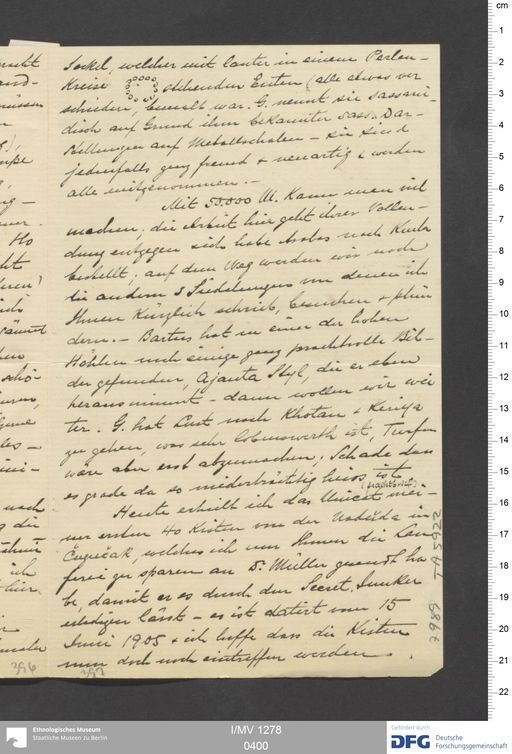 Sockel, welcher mit lauter in einem Perlen-
Kreise stehenden Enten (alle etwas ver
schieden, bemalt war. G. nennt sie sassani-
disch auf Grund ihm bekannter sass. Dar-
stellungen auf Metallschalen – sie sind
jedenfalls ganz fremd & neuartig & werden
alle mitgenommen. –
Mit 50.000 M. kann man viel
machen; die Arbeit hier geht ihrer Vollen-
dung entgegen ich habe Arabas nach Kutscha
bestellt; auf dem Weg werden wir noch
die andern 3 Siedelungen von denen ich
Ihnen kürzlich schrieb, besuchen & plün
dern. – Bartus hat in einer der hohen
Höhlen noch einige ganz prachtvolle Bil-
der gefunden, Ajanta Styl, die er eben
herausnimmt – dann wollen wir wei
ter. G. hat Lust nach Khotan & Keriya
zu gehen, was sehr lobenswerth ist, Turfan
wäre aber erst abzumachen; Schade dass
es grade da so niederträchtig heiss ist.
Heute erhielt ich das Unicat mei-
ner ersten 40 Kisten von der Nadežda in
Čugučak, welches ich um Ihnen die Lau
ferei zu sparen an D. Müller gesandt ha
be, damit er es durch den Secret. Junker
erledigen lässt – es ist datirt vom 15
Juni 1905 & ich hoffe dass die Kisten
nun doch noch eintreffen werden.
396
397
TA 5922
7989
cm
1
2
3
4
5
6
7
8
9
10
11
12
13
14
15
16
17
18
19
20
21
22
Ethnologisches Museum
Staatliche Museen zu Berlin
I/MV 1278
0400
Gefördert durch
DFG Deutsche
Forschungsgemeinschaft